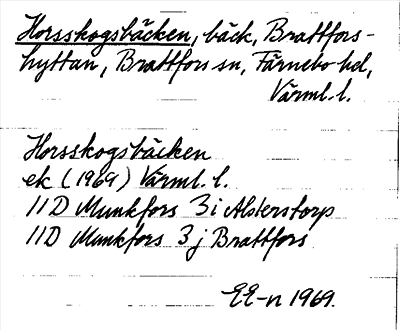 Horsskogsbäcken, bäck, Brattfors-
hyttan, Brattfors sn, Färnebo hd,
Värml. l.
Horsskogsbäcken
ek (1969) Värml. l.
11D Munkfors 3i Alsterstorp
11D Munkfors 3j Brattfors
EE-n 1969.